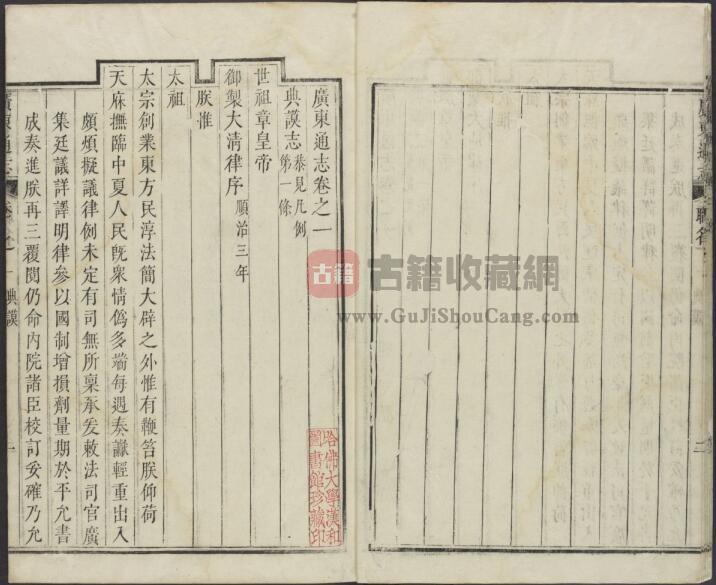 廣東通志卷之一
典謨志恭見凡例第一條
世祖章皇帝
御製大清律序順治三年
朕惟
太祖
太宗創業東方民淳法簡大辟之外惟有鞭笞朕仰荷
天庥撫臨中夏人民旣衆情僞多端每遇奏讞輕重出入
頗煩擬議律例未定有司無所稟承爰敕法司官廣
集廷議詳譯明律參以國制增損劑量期於平允書
成奏進朕再三覆閱仍命內院諸臣校訂妥確乃允
廣東通志 卷之一 典謨 一
哈佛大學漢和
圖書館珍藏印
古籍 古籍收藏網
www.GuJiShouCang.com
二